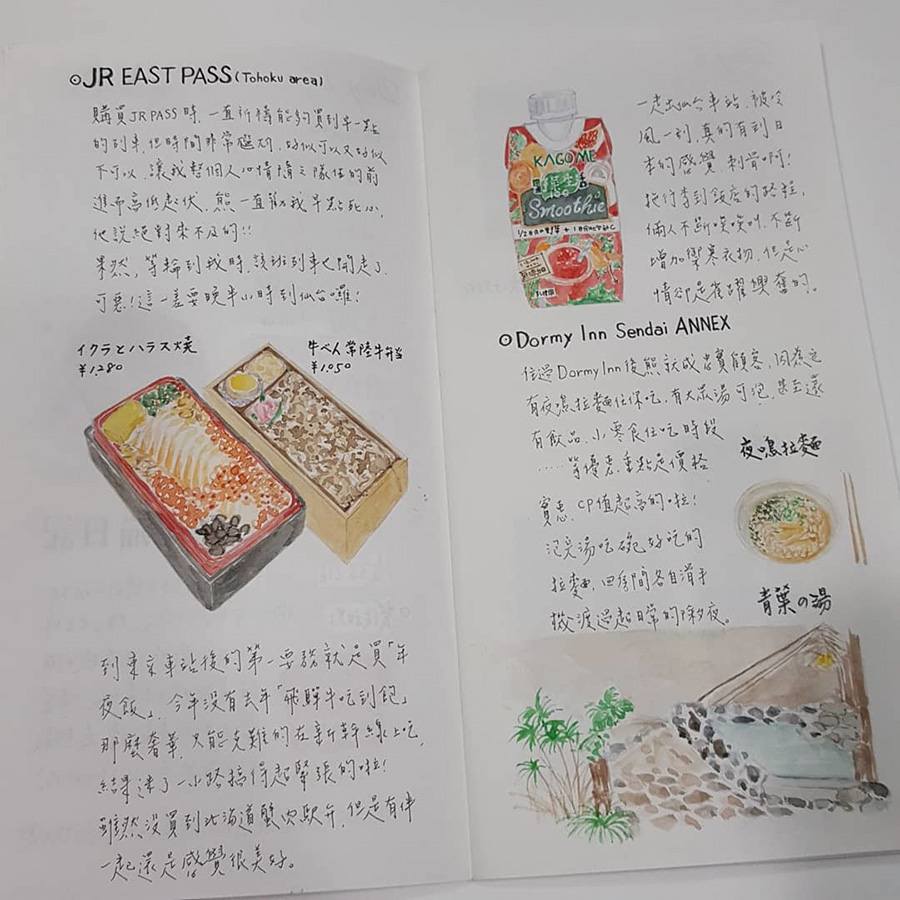 ⊙JR EAST PASS (Tohoku area)
購買JR PASS時,一直祈禱能夠買到早一點
的列車,但時間非常磁切,好似可以又好似
不可以,讓我整個人心情隨之隊伍的前
進而高低起伏,熊一直勸我早點死心,
他說絕對來不及的!!
果然,等輪到我時,該班列車也開走了,
可惡!這一差要晚半小時到仙台囉!
イクラとハラス焼
¥1,280
牛べん 常陸牛弁当
¥1,050
到東京車站後的第一要務就是買「年
夜飯」,今年沒有去年「飛驒牛吃到飽」
那麼奢華,只能克難的在新幹線上吃,
結果淒了一小路搞得超緊張的啦!
雖然沒買到北海道蟹肉駅弁,但是有伴
一起還是感覺很美好。
KAGOME
野菜生活
100
Smoothie
一走出仙台車站,被冷
風一刮,真的有到日
本的感覺,刺骨啊!
拖行李到飯店的路程,
倆人不斷唉唉叫,不斷
增加禦寒衣物,但是心
情卻是雀躍興奮的。
⊙Dormy Inn Sendai ANNEX
住過Dormy Inn後熊就成忠實顧客,因為它
有夜鳴拉麵任你吃,有大眾湯可泡,甚至還
有飲品、小零食任吃時段
……等優惠,重點是價格
實惠,CP值超高的啦!
泡完湯吃碗好吃的
拉麵,回房間各自滑手
機渡過超日常的除夕夜。
夜鳴拉麵
青葉の湯